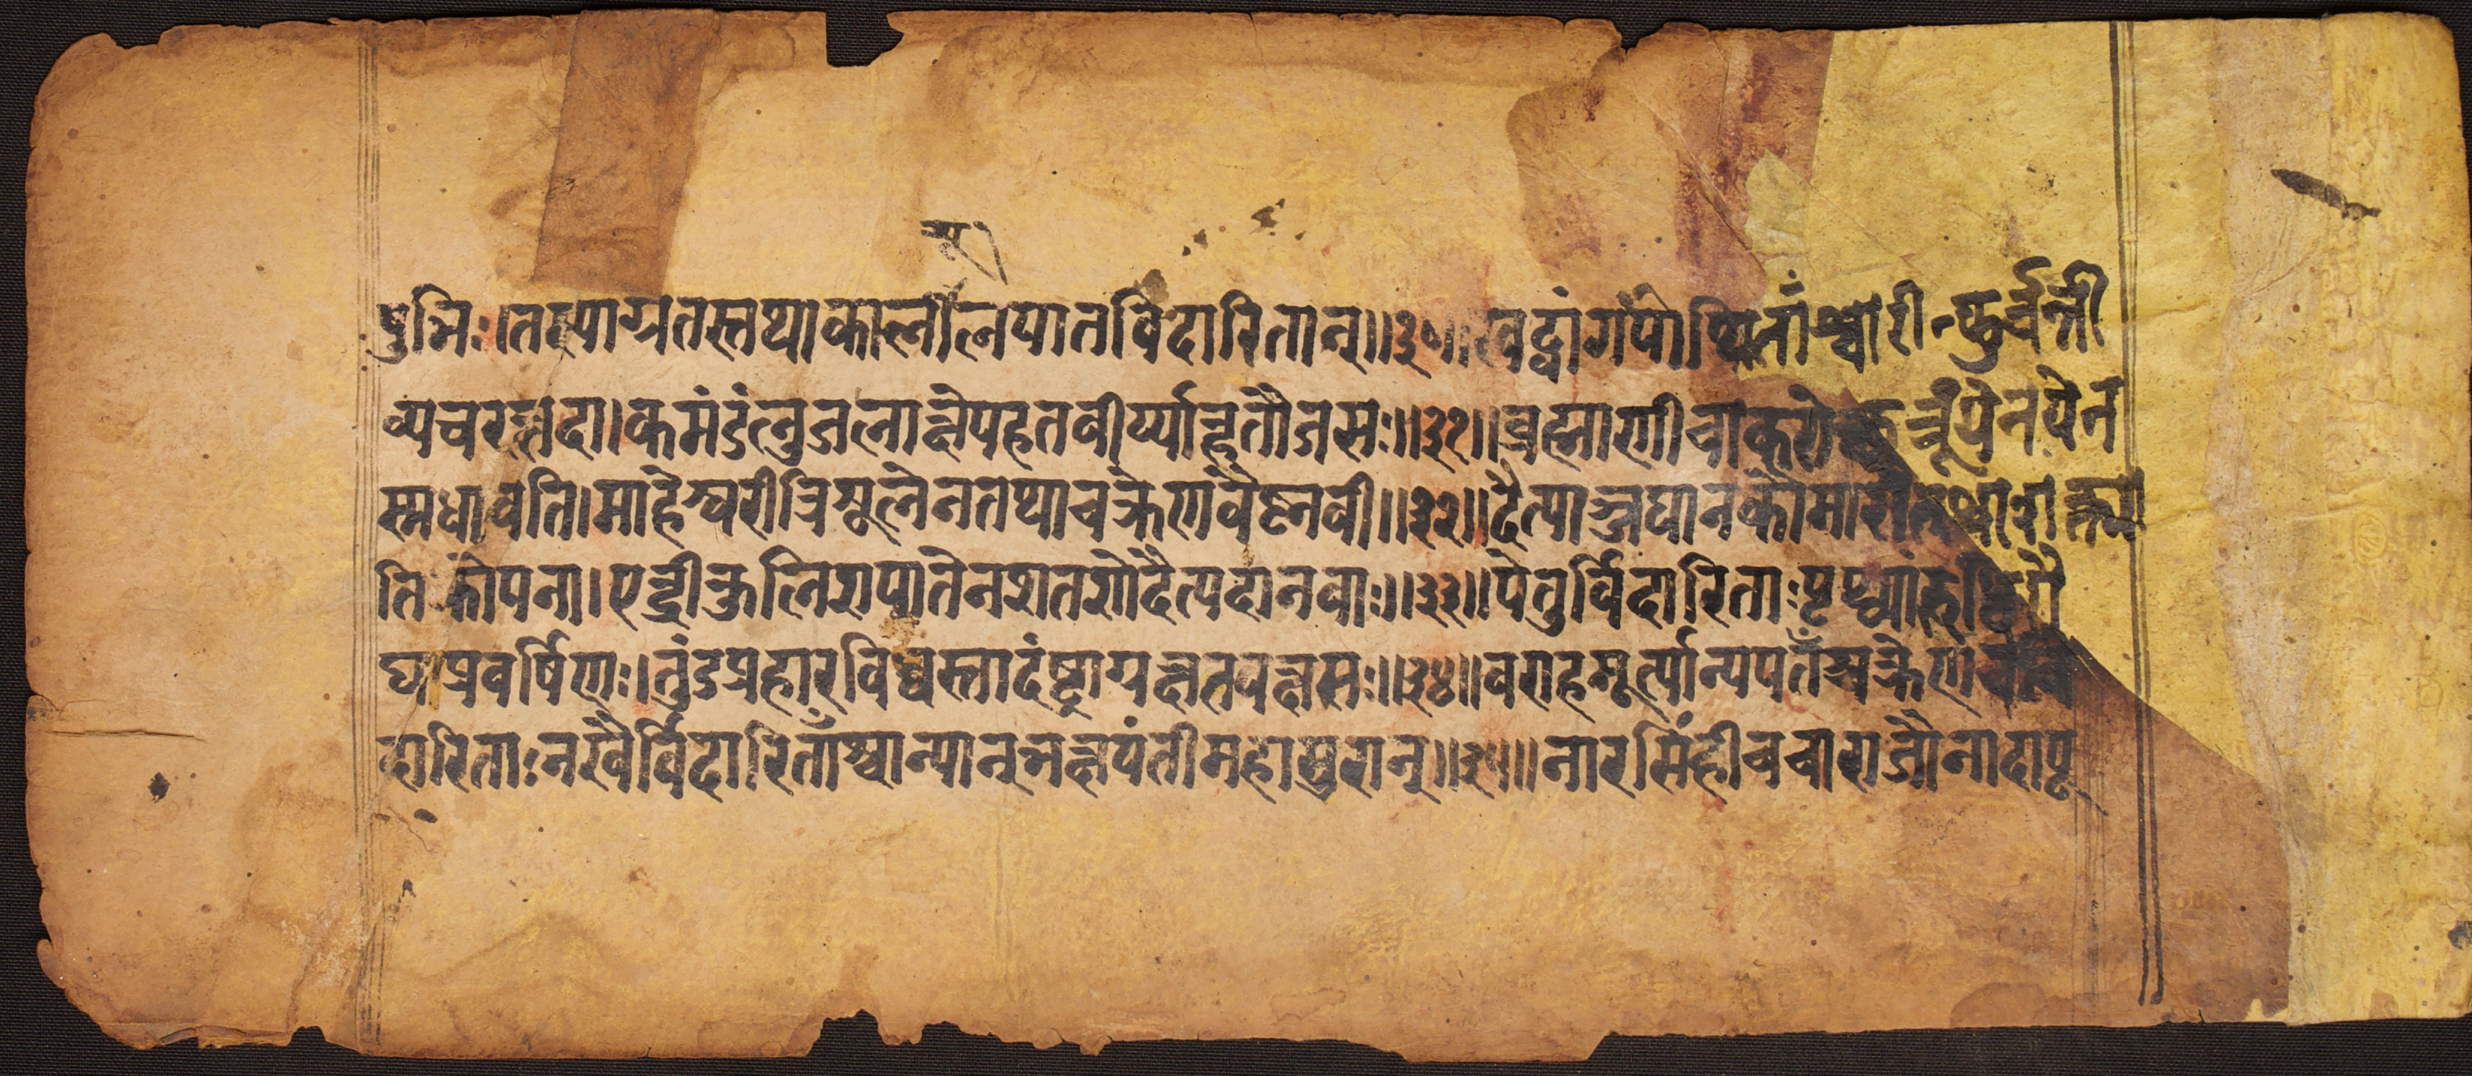 षुभिः।तस्याग्रतस्तथाकालीशूलपातविदारितान्॥३१॥खट्वांगपोथितांश्चारीन्कुर्वन्ती
व्यचरत्तदा।कमंडलुजलाक्षेपहतवीर्य्यान्हतौजसः॥३२॥ब्रह्माणीचाकरोच्छत्रून्येनयेन
स्मधावति।माहेश्वरीत्रिशूलेनतथाचक्रेणवैष्णवी॥३३॥दैत्याञ्जघानकौमारीतथाशक्त्या
तिकोपना।एन्द्रीकुलिशपातेनशतशोदैत्यदानवाः॥३३॥पेतुर्विदारिताःपृथ्व्यांरुधिरौ
घप्रवर्षिणः।तुंडप्रहारविध्वस्तादंष्ट्राग्रक्षतवक्षसः॥३४॥वराहमूर्त्यान्यपतँश्चक्रेणचवि
दारिताःनखैर्विदारिताँश्चान्यान्भक्षयंतीमहासुरान्॥३५॥नारसिंहीचचाराजौनादापू